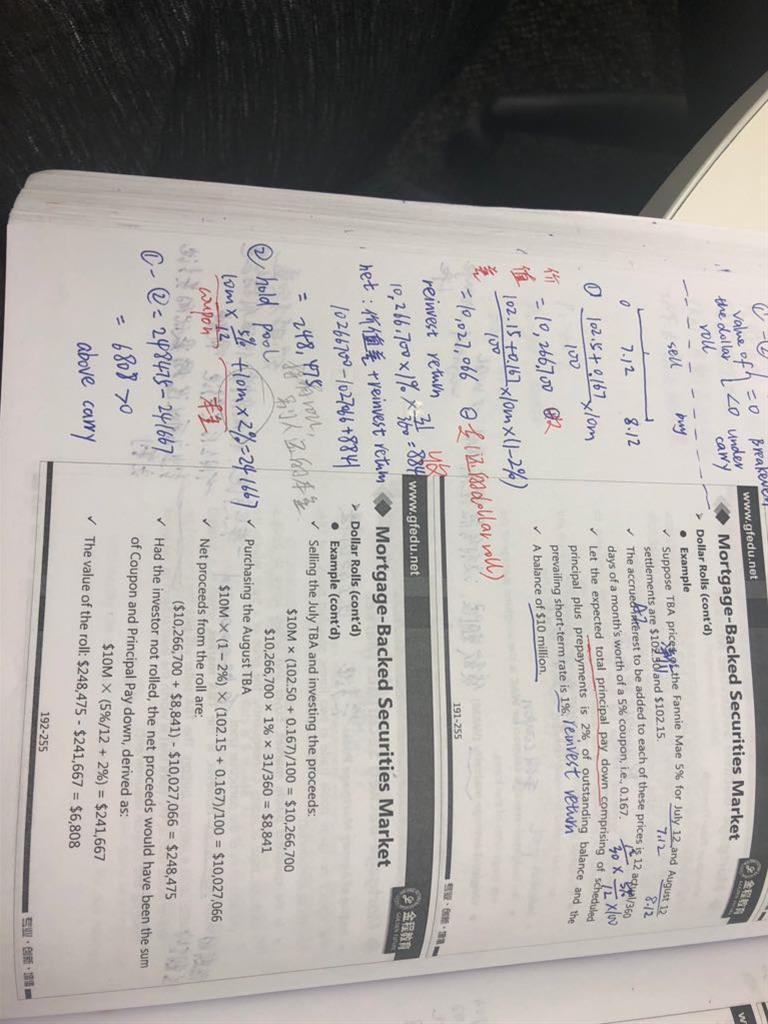 ①-②
value of
the dollar
roll
=0 Breakeven
<0 under
carry
sell buy
0 7.12 8.12
① 102.5+0.167
100
×10m
= 10,266,700 收
价
值
差
102.15+0.167
100
×10m×(1-2%)
=10,027,066
reinvest return
10,266,700×1%×31/360=8841
收
net: 价值差+reinvest return
10266700-1027066+8841
= 248,475
② hold pool
10m×5%/12+10m×2%=241667
coupon
①-②=248475-241667
= 6808>0
above carry
www.gfedu.net
金程教育
GOLDEN FUTURE
Mortgage-Backed Securities Market
Dollar Rolls (cont'd)
Example
✓ Suppose TBA prices of the Fannie Mae 5% for July 12 and August 12
7.12 8.12
settlements are $102.50 and $102.15.
✓ The accrued interest to be added to each of these prices is 12 actual/360
AI
days of a month's worth of a 5% coupon, i.e., 0.167.
12/30×5%/12×100
✓ Let the expected total principal pay down comprising of scheduled
principal plus prepayments is 2% of outstanding balance and the
prevailing short-term rate is 1%. reinvest return
✓ A balance of $10 million.
191-255
专业·创新·增值
www.gfedu.net
金程教育
GOLDEN FUTURE
Mortgage-Backed Securities Market
Dollar Rolls (cont'd)
Example (cont'd)
✓ Selling the July TBA and investing the proceeds:
$10M × (102.50 + 0.167)/100 = $10,266,700
$10,266,700 × 1% × 31/360 = $8,841
✓ Purchasing the August TBA
$10M × (1 − 2%) × (102.15 + 0.167)/100 = $10,027,066
✓ Net proceeds from the roll are:
($10,266,700 + $8,841) - $10,027,066 = $248,475
✓ Had the investor not rolled, the net proceeds would have been the sum
of Coupon and Principal Pay down, derived as:
$10M × (5%/12 + 2%) = $241,667
✓ The value of the roll: $248,475 - $241,667 = $6,808
192-255
专业·创新·增值